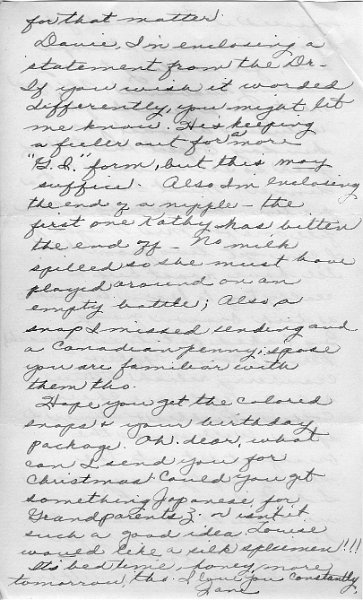 for that matter.
Davie, I'm enclosing a
statement from the Dr.
If you wish it worded
differently, you might let
me know. He's keeping
a feeler out for a more
"G.I." form, but this may
suffice. Also I'm enclosing
the end of a nipple - the
first one Kathy has bitten
the end off - No milk
spilled so she must have
played around on an
empty bottle; Also a
snap I missed sending and
a Canadian penny; spose
you are familiar with
them tho.
Hope you get the colored
snaps & your birthday
package. Oh dear, what
can I send you for
Christmas? Could you get
something Japanese for
Grandparents Z. - isn't it
such a good idea, Louise
would like a silk specimen!!!
It's bedtime, honey, more
tomorrow, tho. I love you constantly
Jane